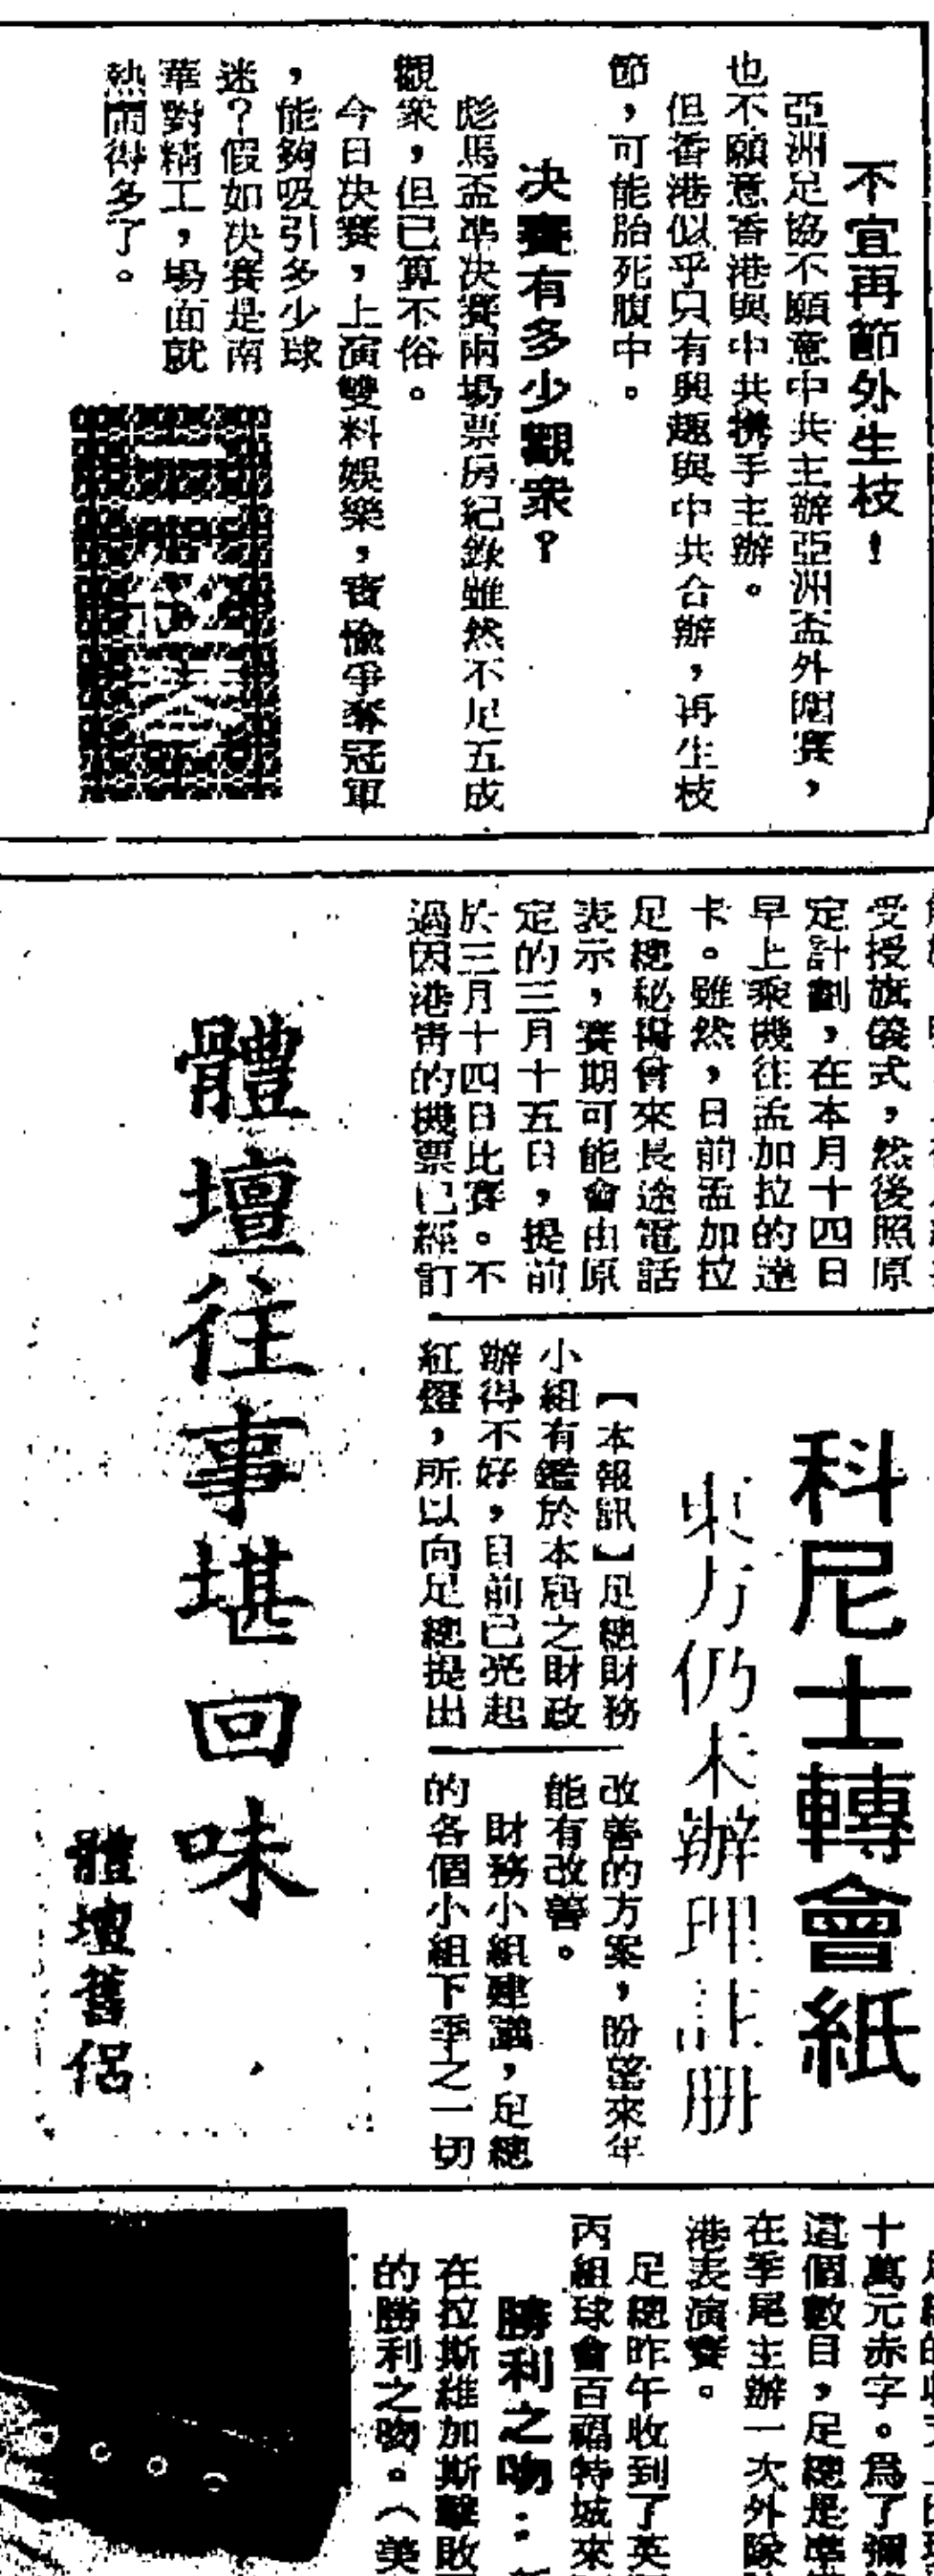 不宜再節外生枝！
亞洲足協不願意中共主辦亞洲盃外圍賽，
也不願意香港與中共携手主辦。
但香港似乎只有興趣與中共合辦，再生枝
節，可能胎死腹中。
决賽有多少觀衆？
彪馬盃準决賽兩場票房紀錄雖然不足五成
觀衆，但已算不俗。
今日决賽，上演雙料娛樂，寶愉爭奪冠軍
，能夠吸引多少球
迷？假如决賽是南
華對精工，場面就
熱鬧得多了。
受授旗儀式，然後照原
定計劃，在本月十四日
早上乘機往孟加拉的達
卡。雖然，日前孟加拉
足總秘書曾來長途電話
表示，賽期可能會由原
定的三月十五日，提前
於三月十四日比賽。不
過因港靑的機票已經訂
科尼士轉會紙
東方仍未辦理註册
【本報訊】足總財務
小組有鑑於本屆之財政
辦得不好，目前已亮起
紅燈，所以向足總提出
改善的方案，盼望來年
能有改善。
財務小組建議，足總
的各個小組下季之一切
體壇往事堪回味
體壇舊侶
十萬元赤字。爲了彌
這個數目，足總是準
在季尾主辦一次外隊
港表演賽。
足總昨午收到了英
丙組球會百福特城來
勝利之吻：
在拉斯維加斯擊敗
的勝利之吻。（美